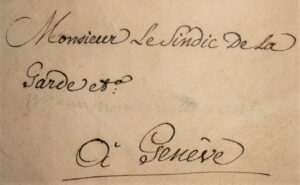 Monsieur Le Sindic De La
Garde et.ª
À Genêve